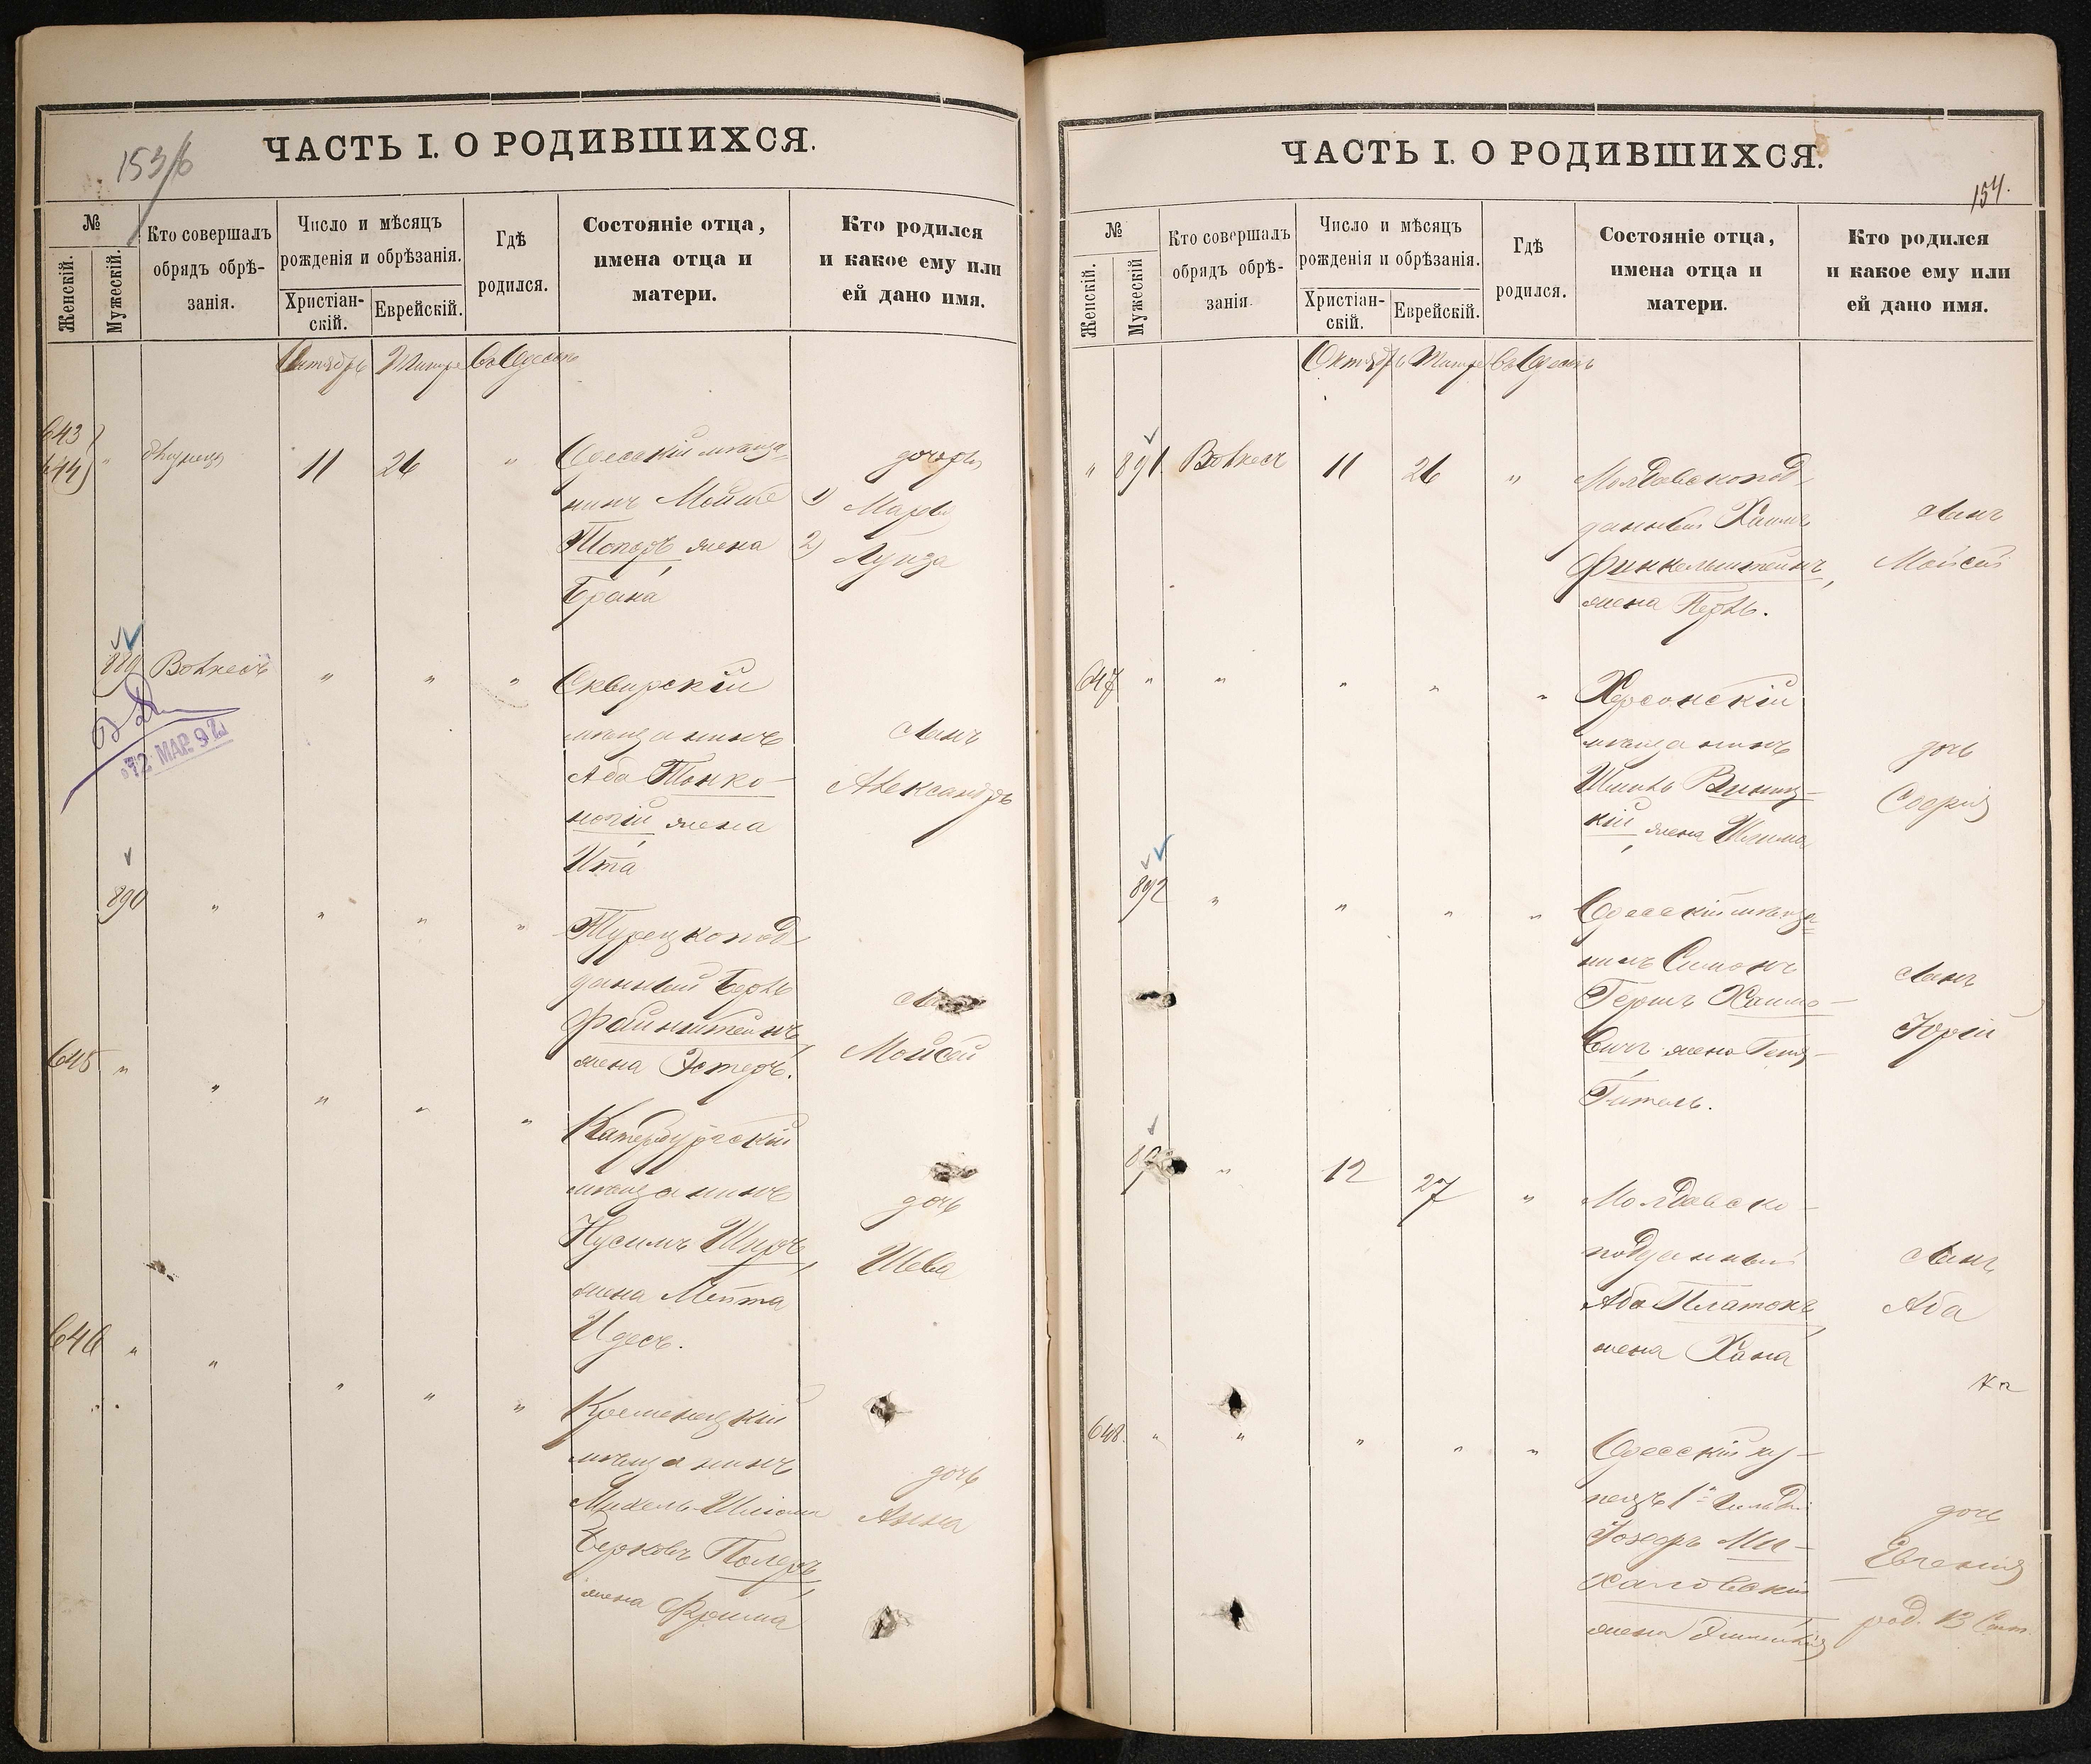 153/б
ЧАСТЬ I. О РОДИВШИХСЯ.
№
Женскій.
Мужескій.
Кто совершалъ
обрядъ обрѣ-
занія.
Число и мѣсяцъ
рожденія и обрѣзанія.
Христіан-
скій.
Еврейскій.
Гдѣ
родился.
Состояніе отца,
имена отца и
матери.
Кто родился
и какое ему или
ей дано имя.
Октябрь Тишре Въ Одессѣ
643
644 " 11 26 "
Одесскій мѣща-
нинъ Мойше
Топоръ, жена
Брана
дочери
1) Марья
2) Луиза
889 " " "
Сквирскій
мѣщанинъ
Аба Тонко-
ногій, жена
Ита
сынъ
Александръ
12 МАР. 92
890 " " " "
Турецкопод-
данный Беръ
Файнштейнъ,
жена Эстеръ.
Моисей
645 " " " " "
Катербургскій
мѣщанинъ
Нусимъ Ширъ,
жена Мейта
Идесъ.
дочь
Шева
646 " " " " "
Кременецкій
мѣщанинъ
Берковъ
жена Фрима
дочь
Анна
ЧАСТЬ I. О РОДИВШИХСЯ.
154.
№
Женскій.
Мужескій
Кто совершалъ
обрядъ обрѣ-
занія.
Число и мѣсяцъ
рожденія и обрѣзанія.
Христіан-
скій.
Еврейскій.
Гдѣ
родился.
Состояніе отца,
имена отца и
матери.
Кто родился
и какое ему или
ей дано имя.
Октябрь Тишре Въ Одессѣ
" 891 11 26 "
Молдавскопод-
данный Хаимъ
Финкельштейнъ,
жена Перль.
сынъ
Моисей
647 " " " " "
Херсонскій
мѣщанинъ
Винниц-
кій, жена
дочь
Софія
892 " " " "
Одесскій мѣща-
нинъ Симонъ
Гершъ Хаимо-
вичъ, жена Геня-
Гитель.
сынъ
Юрій
893 " 12 27 "
Молдавско-
подданный
Аба Платокъ,
жена Хана
сынъ
Аба
648. " " " " "
Одесскій ку-
пецъ 1й гильдіи
Іозефъ Ми-
халовскій
жена
дочь
Евгенія
род. 13 Сент.